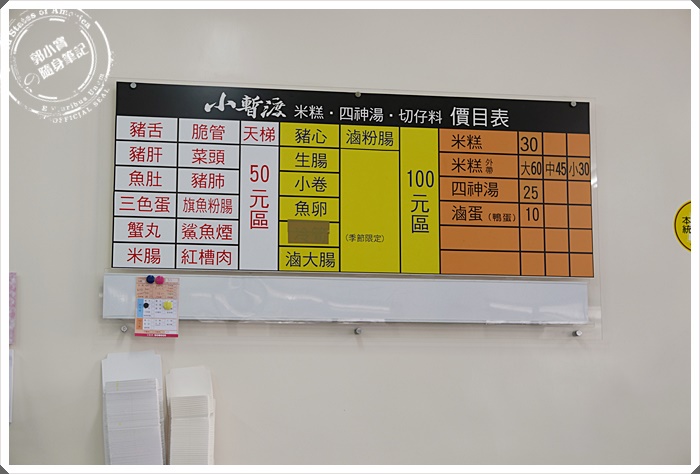 郭小寶
の隨身筆記
OFFICIAL SEAL
小暫渡 米糕・四神湯・切仔料 價目表
豬舌 脆管 天梯 豬心 滷粉腸 米糕 30
豬肝 菜頭 生腸 米糕 外帶 大60 中45 小30
魚肚 豬肺 小卷 四神湯 25
三色蛋 旗魚粉腸 魚卵 滷蛋(鴨蛋) 10
蟹丸 鯊魚煙 (季節限定)
米腸 紅槽肉 滷大腸
50元區
100元區
本統